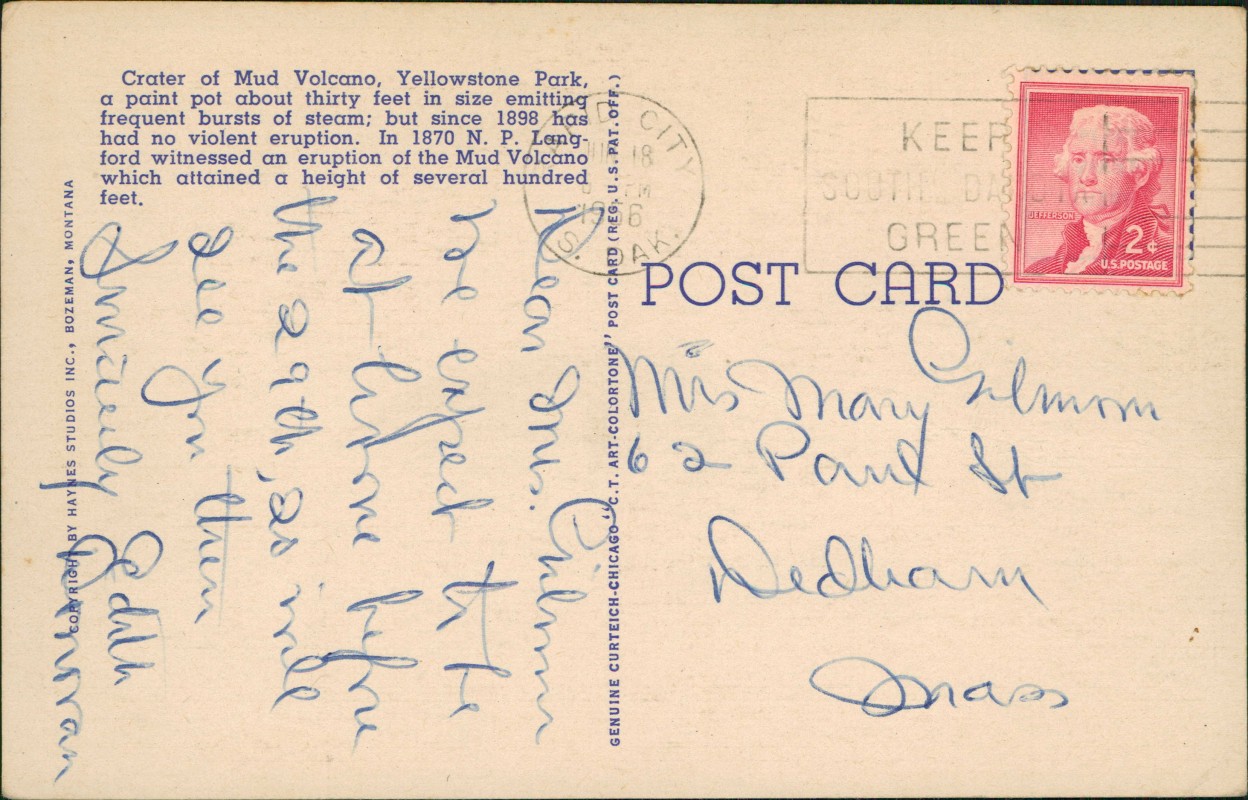 Crater of Mud Volcano, Yellowstone Park,
a paint pot about thirty feet in size emitting
frequent bursts of steam; but since 1898 has
had no violent eruption. In 1870 N. P. Lang-
ford witnessed an eruption of the Mud Volcano
which attained a height of several hundred
feet.
COPYRIGHT BY HAYNES STUDIOS INC., BOZEMAN, MONTANA
Dear Mrs. Gilmore
We expect to be
at home before
the 29th, so will
see you then
Sincerely
Edith
GENUINE CURTEICH-CHICAGO "C.T. ART-COLORTONE" POST CARD (REG. U.S. PAT. OFF.)
RAPID CITY
18
PM
1956
S. DAK.
KEEP
SOUTH DAKOTA
GREEN
JEFFERSON
2¢
U.S. POSTAGE
POST CARD
Mrs Mary Gilmore
62 Paul St
Dedham
Mass